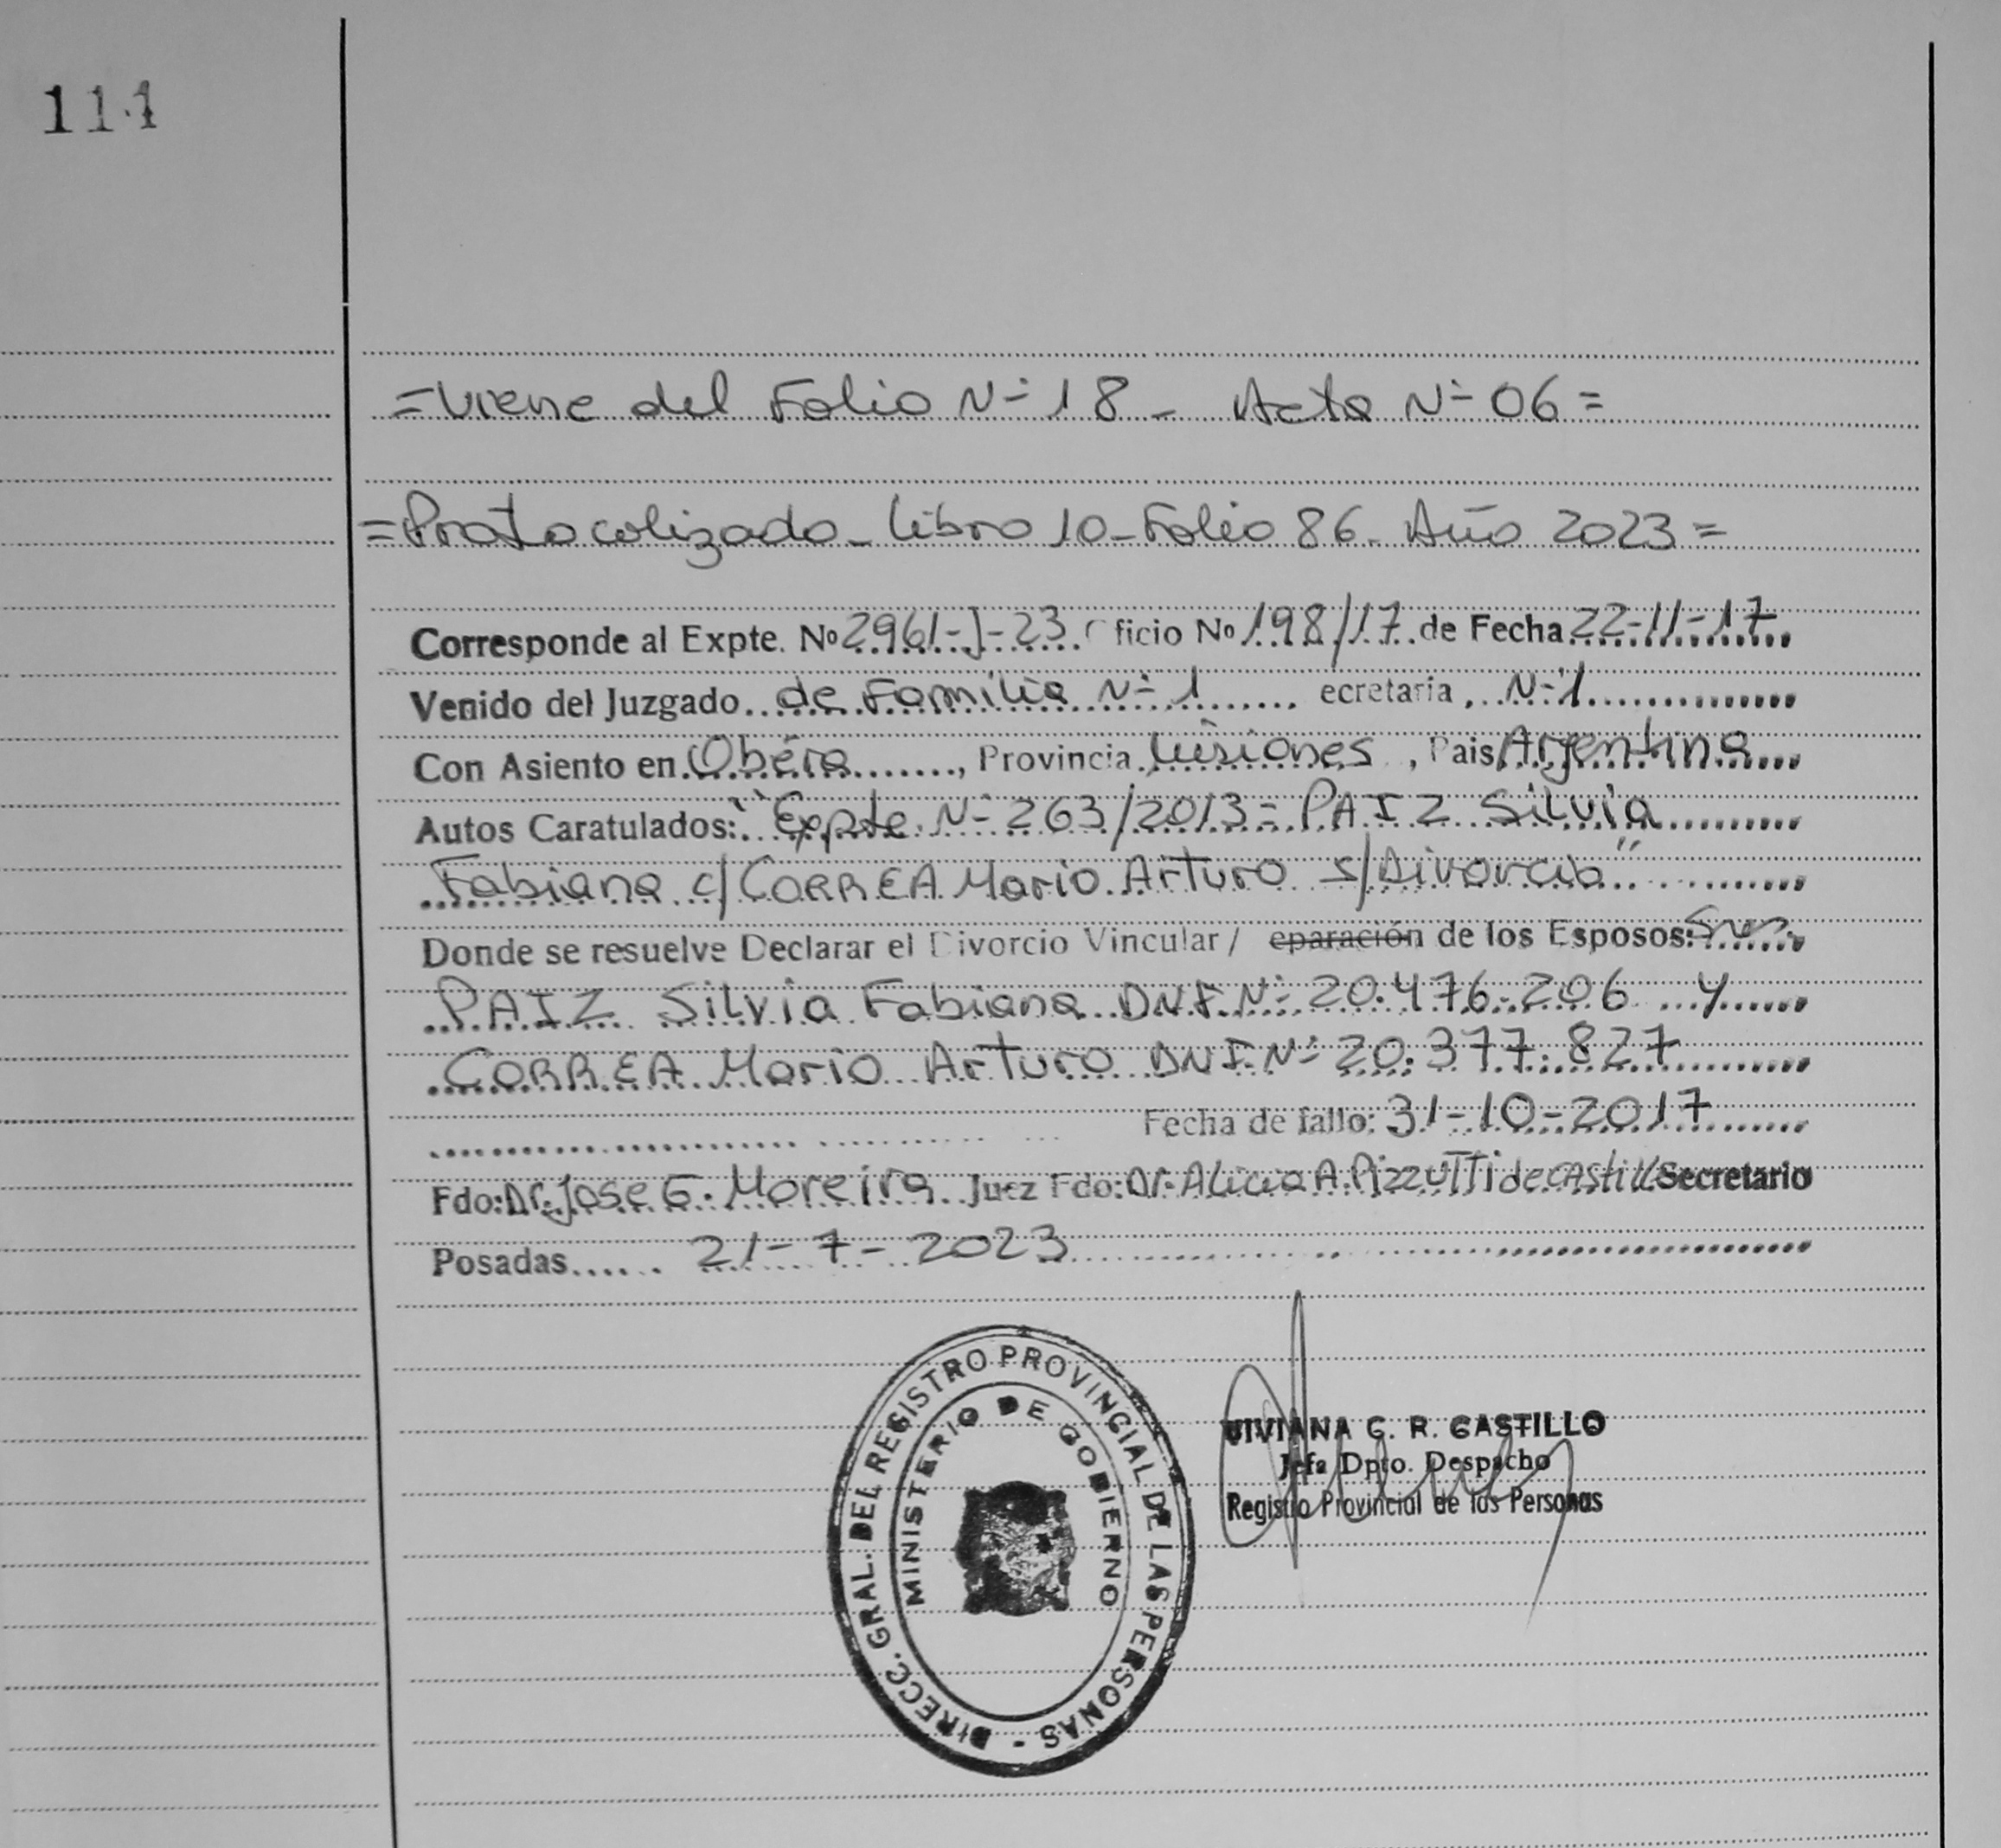 111
=Viene del Folio Nº 18 - Acta Nº 06=
=Protocolizado - Libro 10 - Folio 86 - Año 2023=
Corresponde al Expte. Nº 2961-J-23. ficio Nº 198/17. de Fecha 22-11-17
Venido del Juzgado de Familia Nº 1 ecretaria, Nº 1
Con Asiento en Oberá, Provincia Misiones, Pais Argentina
Autos Caratulados: "Expte. Nº 263/2013= PAIZ Silvia
Fabiana c/ CORREA Mario Arturo s/Divorcio"
Donde se resuelve Declarar el Divorcio Vincular / eparación de los Esposos:
PAIZ Silvia Fabiana DNI. Nº 20.476.206 y
CORREA Mario Arturo DNI. Nº 20.377.827
Fecha de fallo: 31-10-2017
Fdo: Dr. Jose G. Moreira Juez Fdo: Dr. Alicia A. Pizzutti de Castillo Secretario
Posadas 21-7-2023
DIRECC. GRAL. DEL REGISTRO PROVINCIAL DE LAS PERSONAS -
MINISTERIO DE GOBIERNO
VIVIANA G. R. CASTILLO
Jefa Dpto. Despacho
Registro Provincial de las Personas